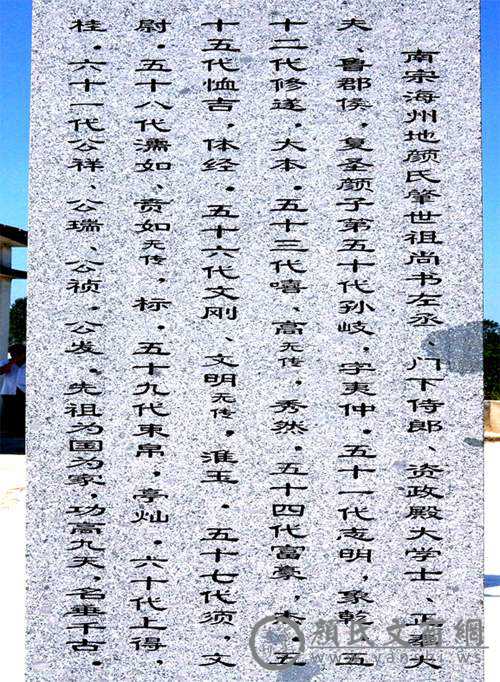 南宋海州地颜氏肇世祖尚书左丞、门下侍郎、资政殿大学士、正奉大
夫、鲁郡侯，复圣颜子第五十代孙岐，字夷仲。五十一代志明，象乾。五
十二代修遂，大本。五十三代嘻、高无传，秀然。五十四代富豪，杰。五
十五代恤吉，体经。五十六代文刚、文明无传，淮玉。五十七代须，文
尉。五十八代濡如、贵如无传，标。五十九代束帛，亭灿。六十代上得，
桂。六十一代公祥、公瑞、公祯，公发。先祖为国为家，功高九天，名垂千古。
顏氏文音網